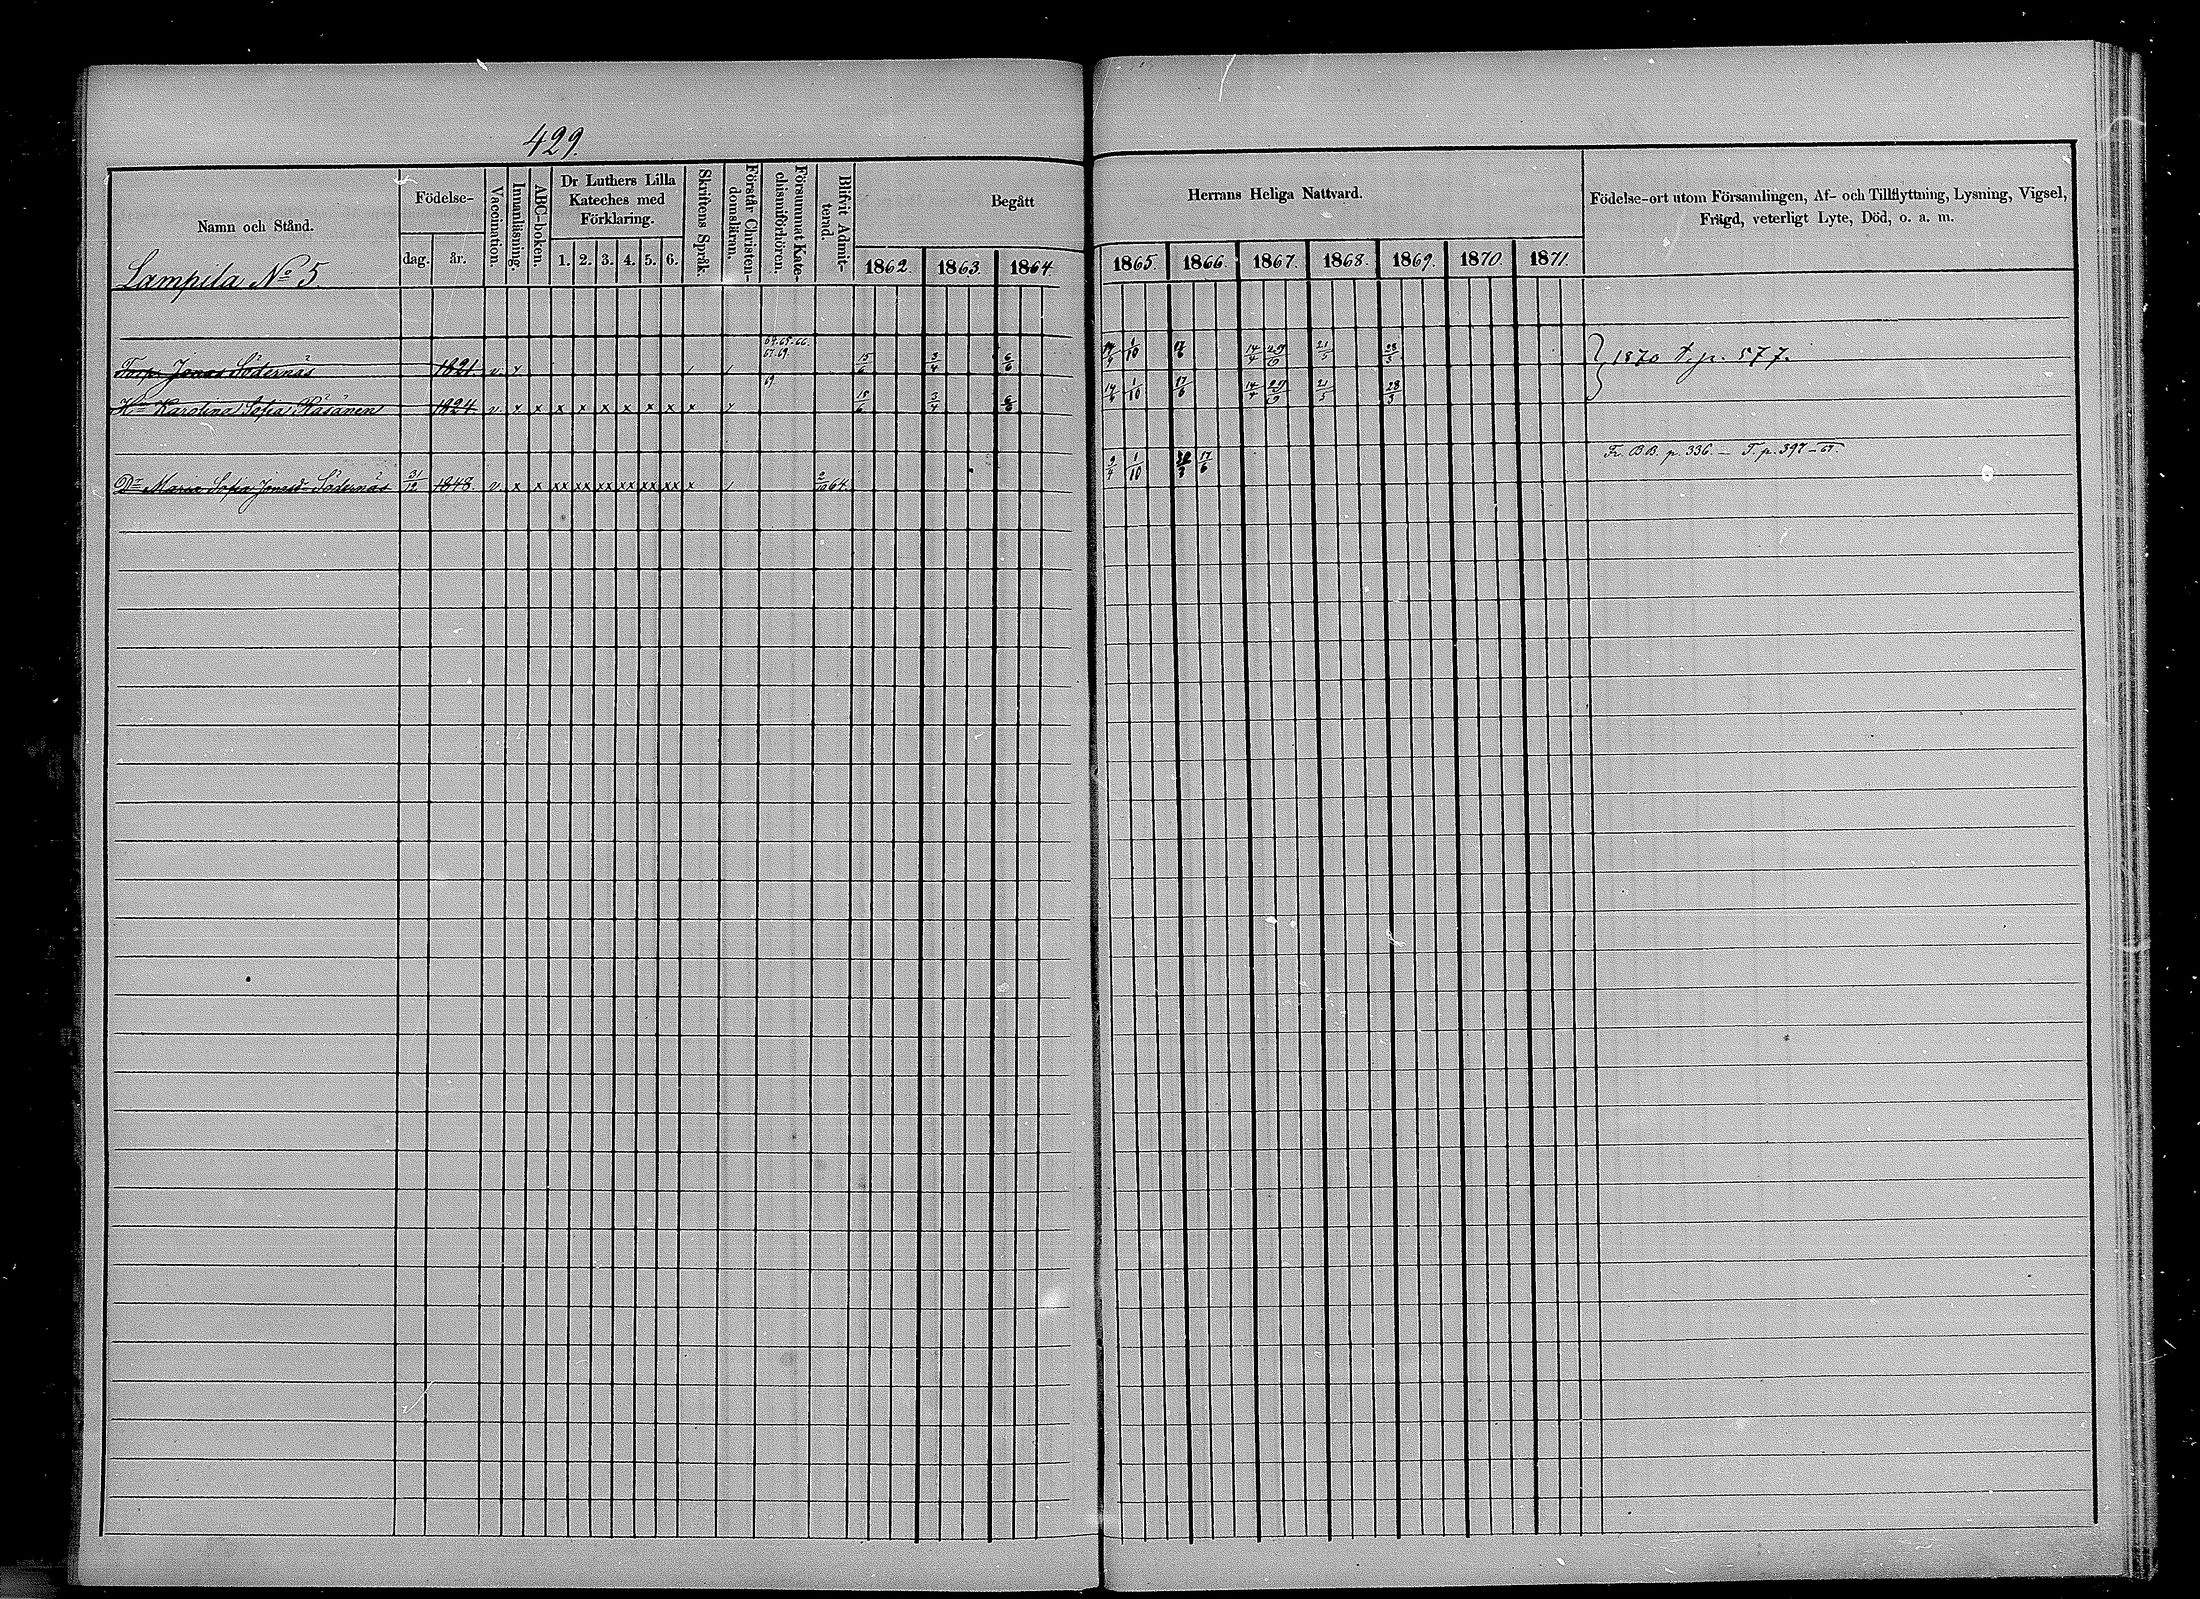 429.
Namn och Stånd.
Födelse-
dag. år.
Vaccination.
Innanläsning.
ABC-boken.
Dr Luthers Lilla
Kateches med
Förklaring.
1. 2. 3. 4. 5. 6.
Skriftens Språk.
Förstår Christen-
domsläran.
Försummat Kate-
chismiförhören.
Blifvit Admit-
terad.
Begått
1862. 1863. 1864.
Herrans Heliga Nattvard.
1865. 1866. 1867. 1868. 1869. 1870. 1871.
Födelse-ort utom Församlingen, Af- och Tillflyttning, Lysning, Vigsel,
Frägd, veterligt Lyte, Död, o. a. m.
Lampila No 5
64.65.66.
67.69.
Jonas Södernäs 1821 v. 15/6 3/4 6/6 1/10 14/4 21/5 28/3 1870 t. p. 577.
69
Hu Karolina Sofia Räsänen 1824 v. x x x x x x x x x 15/6 3/4 14/4 1/10 17/6 14/4 21/5 28/3
Fr. B.B. p. 336. – T. p. 397 – 67.
Dr Maria Sofia Jonasd:r Södernäs 31/12 1848. v. x x xx xx xx xx xx xx x 64. 9/4 1/10 17/6